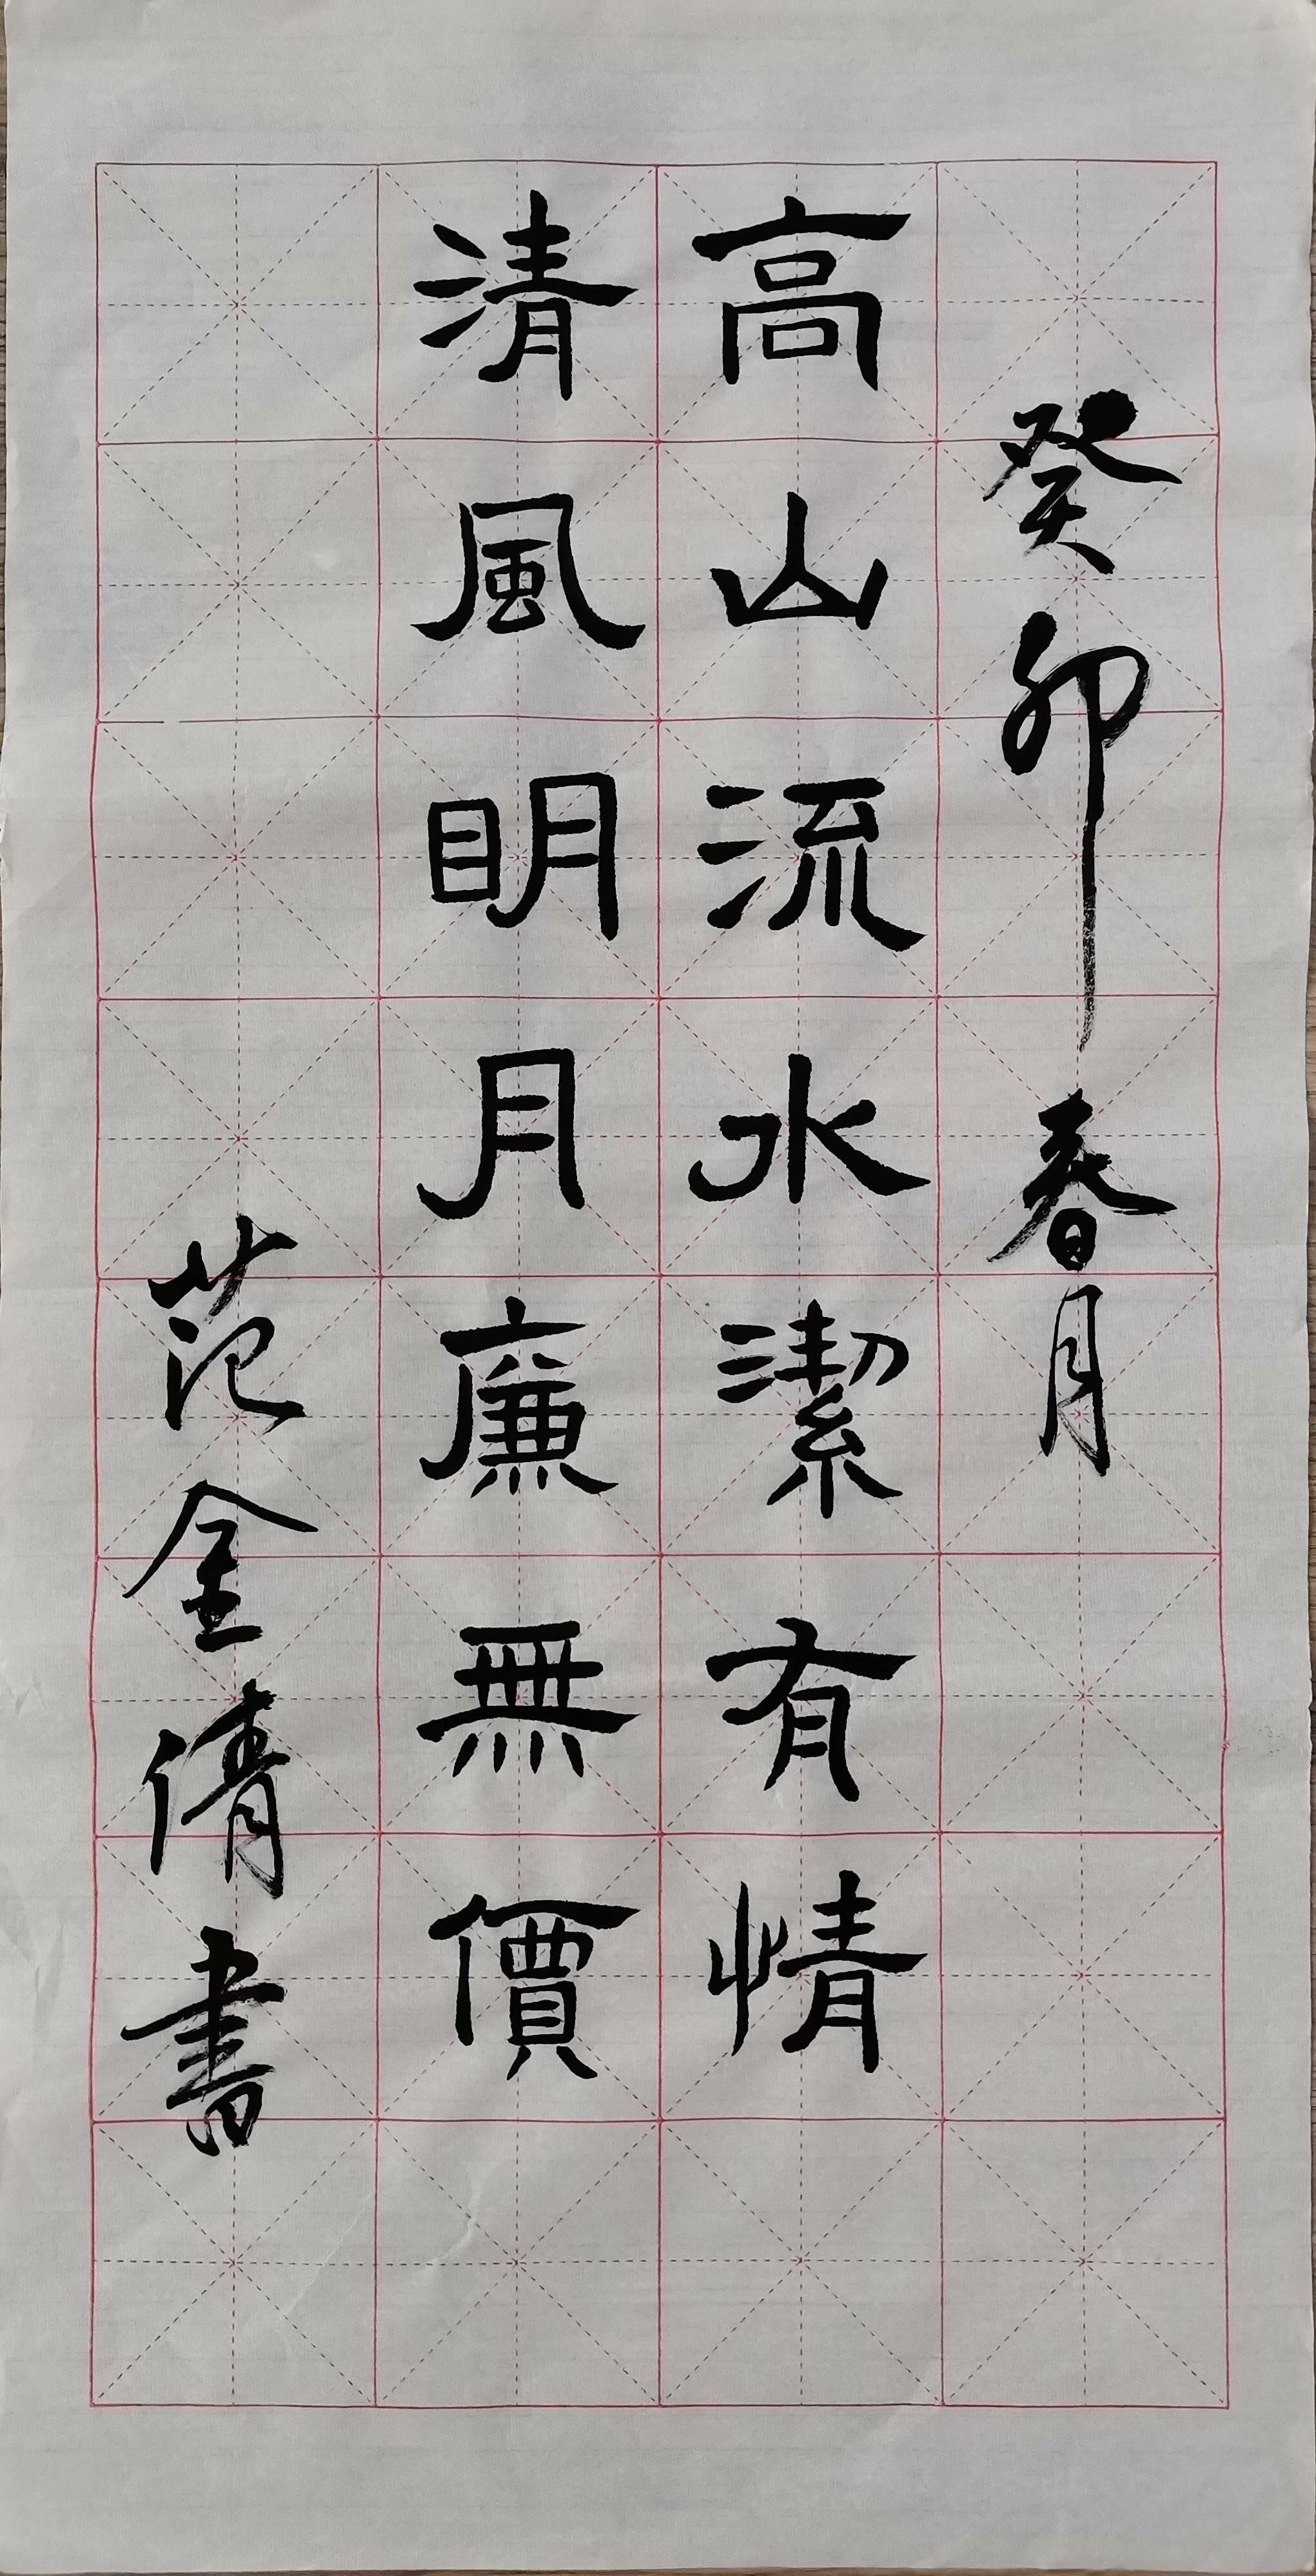 癸卯春月
高山流水潔有情
清風明月廉無價
范金倩書